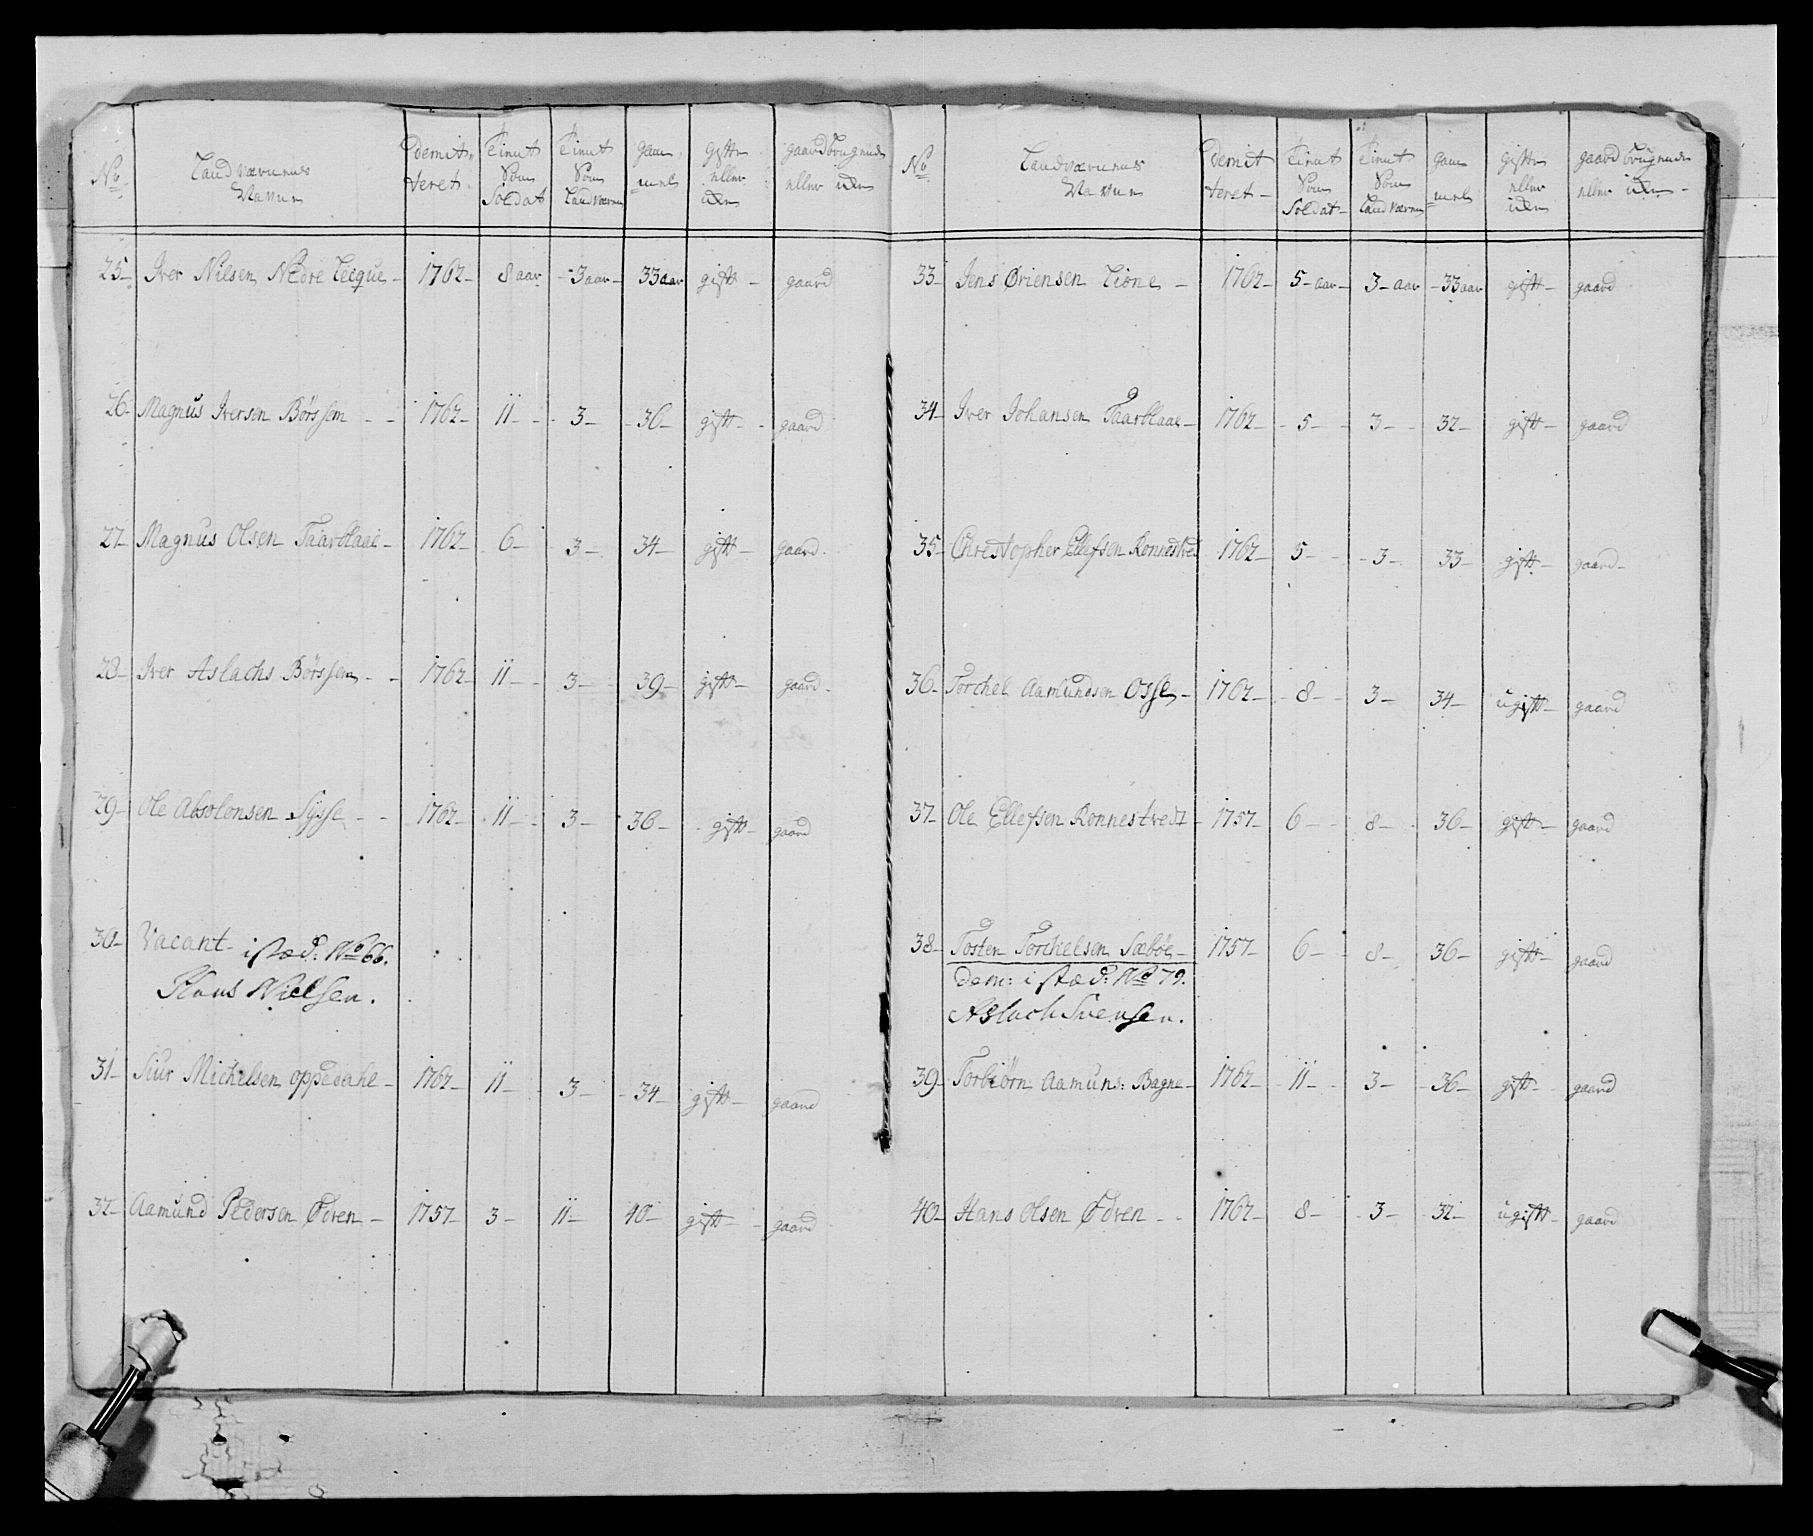 No Land Værnens Navne demitteret. Tient Som Soldat Tient Som Land Værnen gammel gift eller iken gaardbrugende eller iken
25- Iver Nilsen Nedre Lecque - 1762- 8 aar - 3 aar - 33 aar gift - gaard
26- Magnus Iversen Börssem - - 1762- 11 - - 3 - - 36 - gift - - gaard
27- Magnus Olsen Taarblaae - 1762- 6 - 3 - 34 - gift - gaard -
28- Iver Aslachs Börssem - - 1762- 11 - 3 - 39 - gift - gaard -
29- Ole Absolonsen Sysse - - 1762- 11 - - 3 - 36 - - gift - gaard
30- Vacant - i stæd: No 66.
Hans Nielsen.
31- Siur Michelsen oppedahl - 1762- 11 - 3 - - 34 - gift - gaard
32- Aamund Pedersen Ödven - 1757- 3 - 11 - 40 - gift - gaard
No Land Værnens Navne demitteret - Tient Som Soldat - Tient Som Land Værnen gammel gift eller iken gaard brugende eller iken -
33- Jens Øriensen Lione - 1762- 5 - aar - 3 - aar - 33 aar gift - gaard
34- Iver Johansen Taarblaae - 1762- - 5 - - 3 - - 32 - gift - gaard
35- Christopher Ellefsen Ronnestved 1762- 5 - - - 3 - - 33 - gift - gaard -
36- Torchel Aamundsen Osse - 1762- - 8 - - 3 - 34 - ugift - gaard
37- Ole Ellefsen Ronnestvedt - 1757- 6 - - 8 - 36 - gift - gaard
38- Tosten Torchelsen Sæböe - 1757- 6 - - 8 - 36 - gift - gaard
Dem: i stæd: No 79.
Aslach Svensen.
39- Torbiörn Aamuns: Bagne - 1762- 11 - - 3 - - 36 - gift - gaard
40- Hans Olsen Ödven - - 1762- 8 - - 3 - - 32 - ugift - gaard